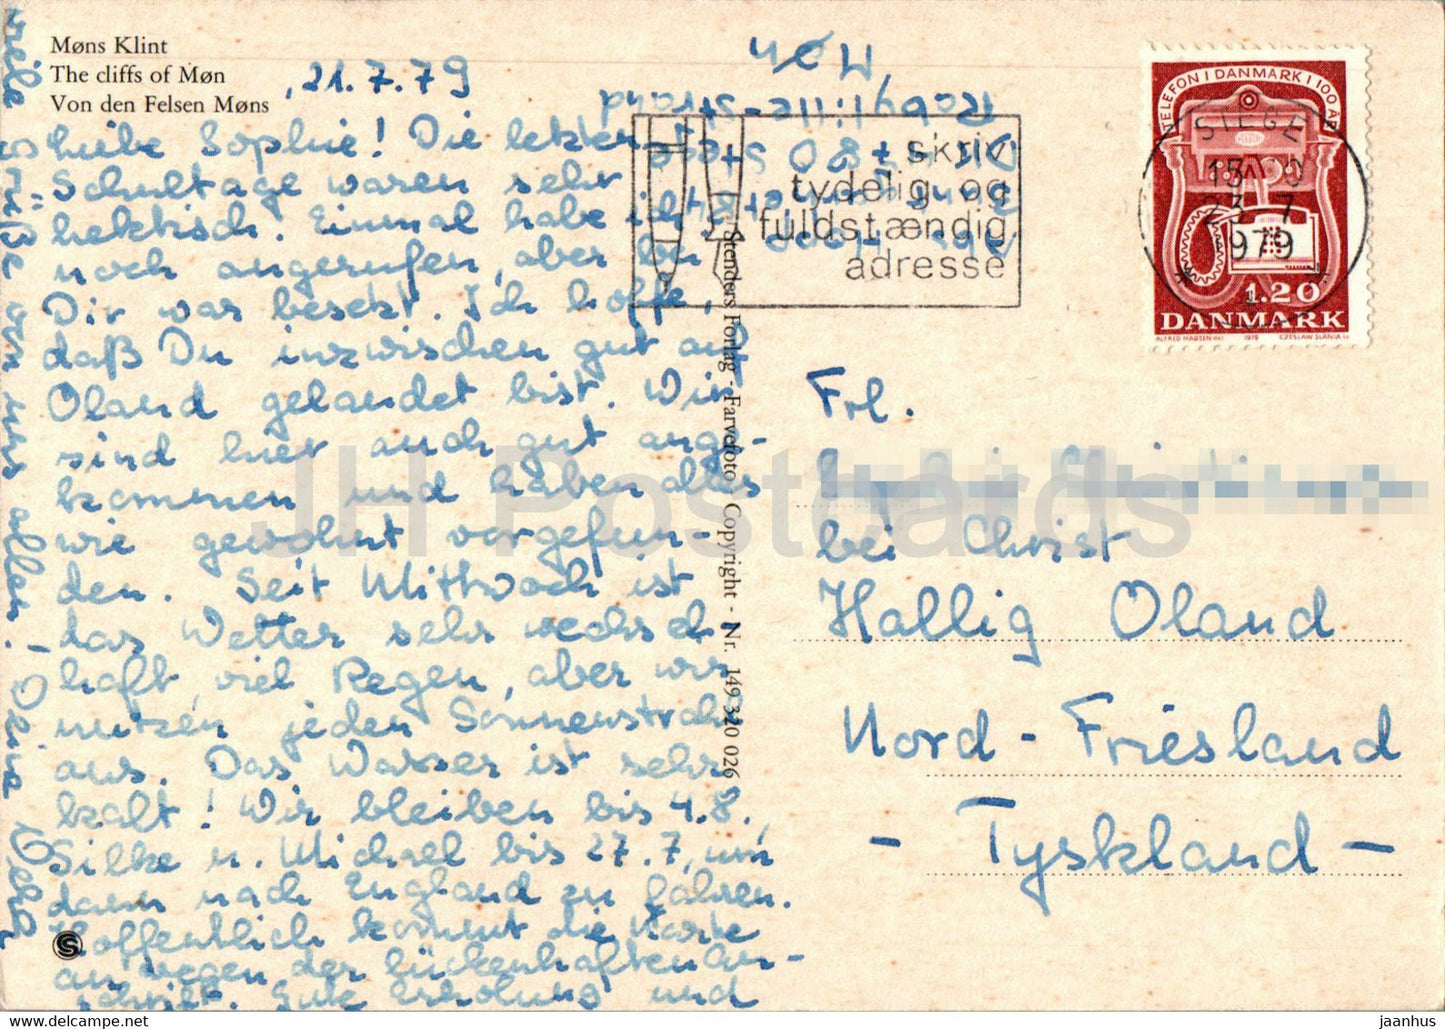 Møns Klint
The cliffs of Møn
Von den Felsen Møns
, 21.7.79
Liebe Sophie! Die letzten
Schultage waren sehr
hektisch. Einmal habe ich
noch angerufen, aber bei
Dir war besetzt. Ich hoffe,
daß Du inzwischen gut auf
Oland gelandet bist. Wir
sind hier auch gut ange-
kommen und haben alles
wie gewohnt vorgefun-
den. Seit Mittwoch ist
das Wetter sehr wechsel-
haft, viel Regen, aber wir
nutzen jeden Sonnenstrahl
aus. Das Wasser ist sehr
kalt! Wir bleiben bis 4.8.,
Silke u. Michael bis 27.7, um
dann nach England zu fahren.
Hoffentlich kommt die Karte
an wegen der lückenhaften An-
schrift. Gute Erholung und
viele Grüße von uns allen. - Deine
Abs.
DK - 4780 Stege
Råbylille-Strand
Møn
skriv
tydelig og
fuldstændig
adresse
TELEFON I DANMARK I 100 ÅR
1.20
DANMARK
ALFRED MADSEN 1979 CZESLAW SLANIA
STEGE
23 7
1979
Frl.
bei Christ
Hallig Oland
Nord-Friesland
- Tyskland -
Stenders Forlag - Farvefoto Copyright - Nr. 149 320 026
S
JH Postcards
https://www.ebay.com/str/jhpostcards
jaanhus